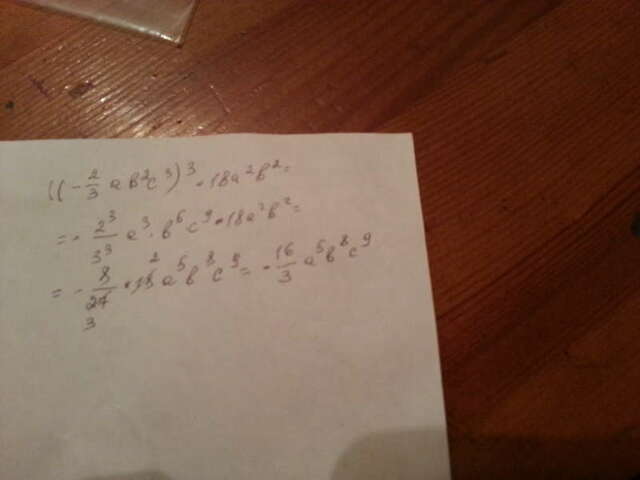 ((-2/3 ab²c³)³ • 18a²b² =
= - 2³/3³ a³ • b⁶ c⁹ • 18a²b² =
= - 8/27 3 • 18 2 a⁵b⁸c⁹ = - 16/3 a⁵b⁸c⁹